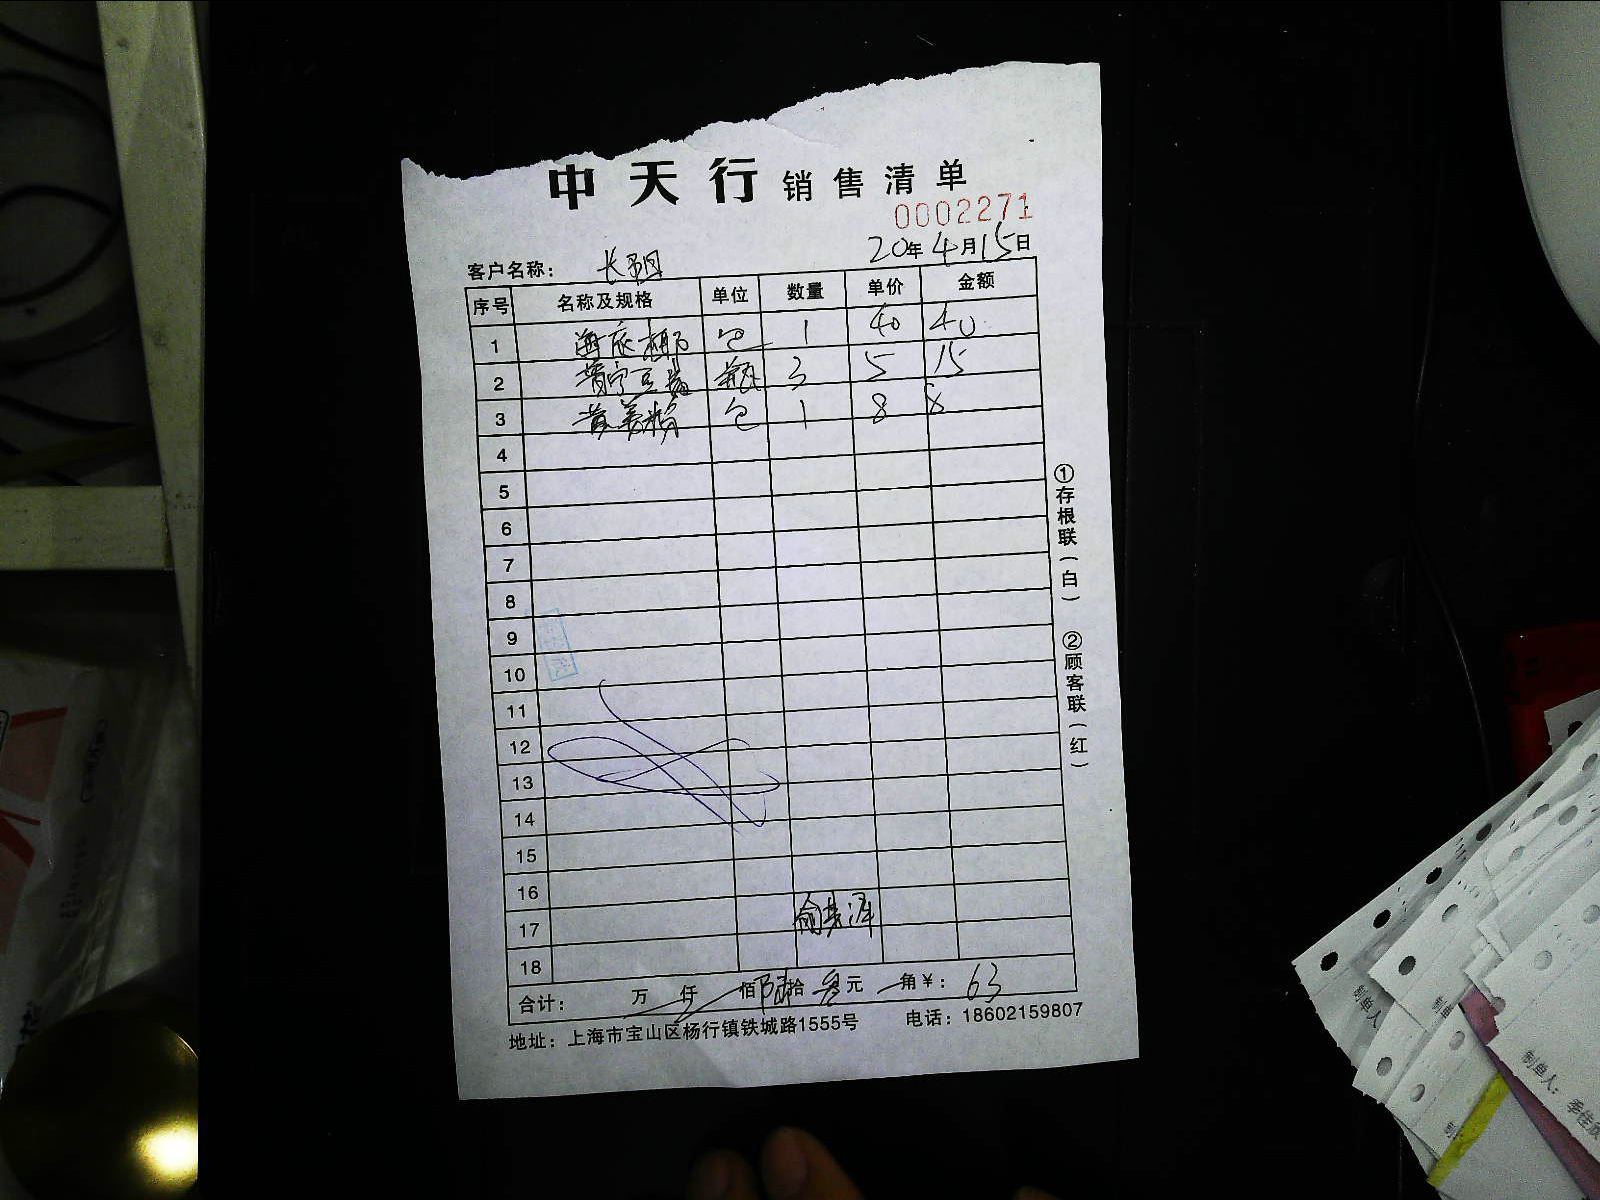 中天行 销售清单
0002271
客户名称： 20年4月15日
序号 名称及规格 单位 数量 单价 金额
1 海底椰 包 1 40 40
2 普宁豆酱 瓶 3 5 15
3 黄姜粉 包 1 8 8
4
5
6
7
8
9
10
11
12
13
14
15
16
17
18
合计： 万 仟 佰 陆拾 叁元 角￥： 63
地址：上海市宝山区杨行镇铁城路1555号 电话：18602159807
①存根联（白） ②顾客联（红）
制单人
制单人：